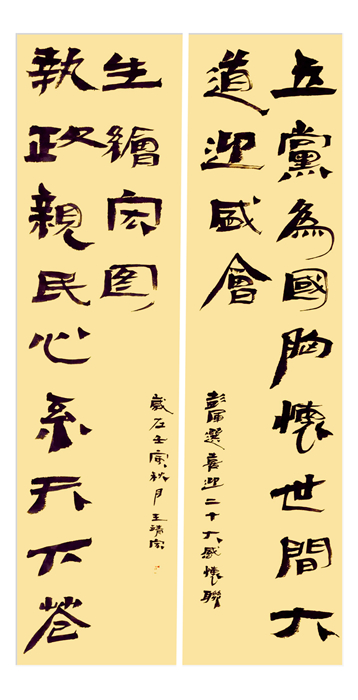 立黨為國胸懷世間大
道迎盛會
選喜迎二十大感懷聯
執政親民心系天下蒼
生繪宏图
歲在壬寅秋月王